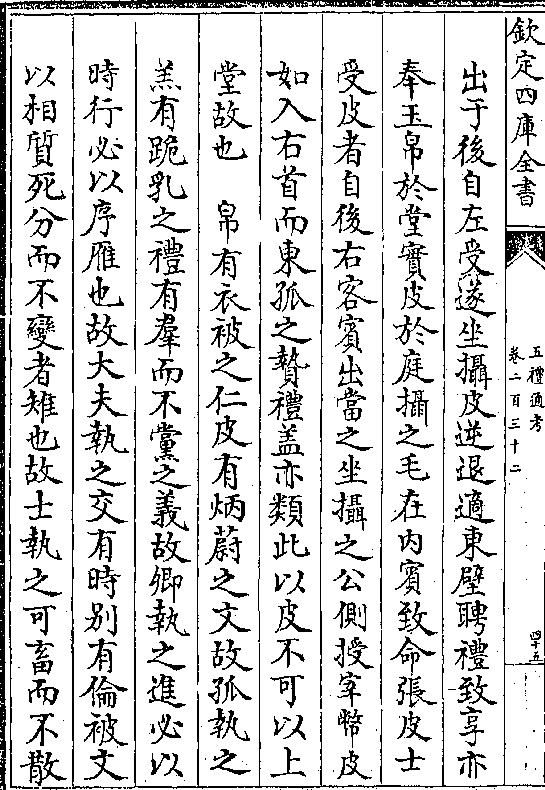 欽定四庫全書
五禮通考
卷二百三十二
四十五
出于後自左受遂坐攝皮逆退適東壁聘禮致享亦
奉玉帛於堂實皮於庭攝之毛在内賓致命張皮士
受皮者自後右客賓出當之坐攝之公側授宰幣皮
如入右首而東孤之贄禮盖亦類此以皮不可以上
堂故也　帛有衣被之仁皮有炳蔚之文故孤執之
羔有跪乳之禮有羣而不黨之義故卿執之進必以
時行必以序雁也故大夫執之交有時别有倫被文
以相質死分而不變者雉也故士執之可畜而不散